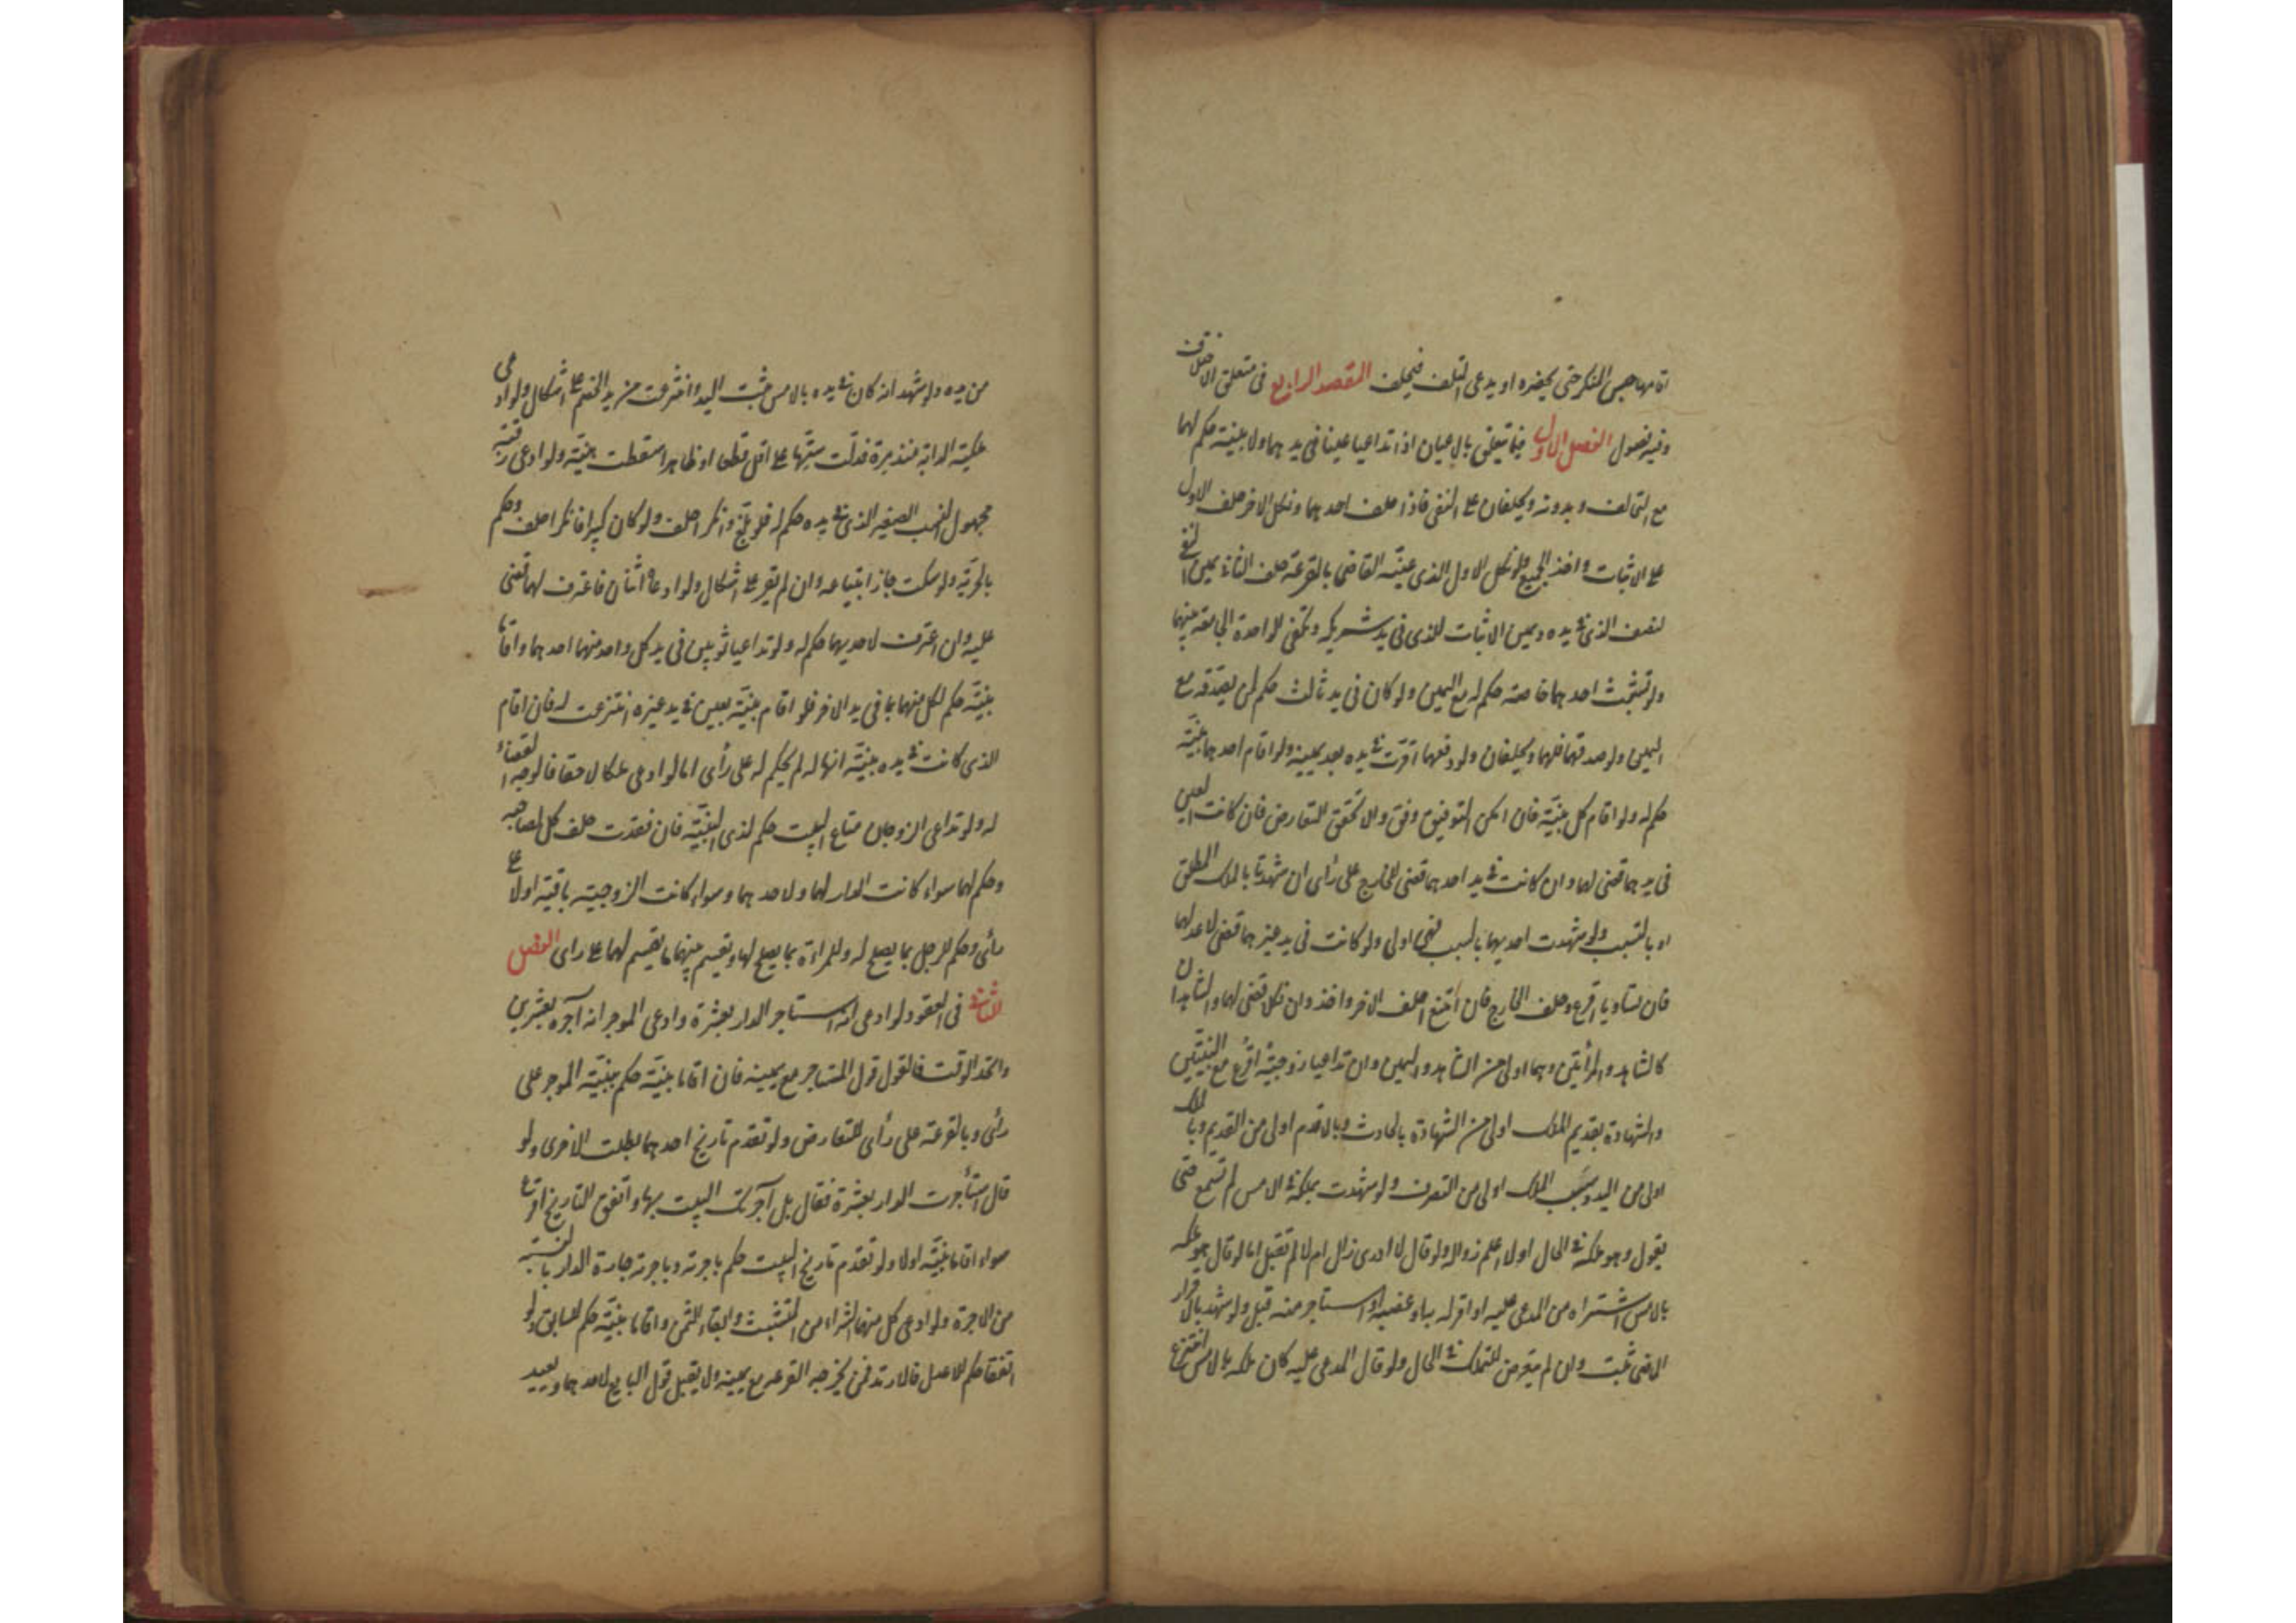 اقامها حبس المنكر حتى يحضره او يدعى التلف فيحلف المقصد الرابع فى متعلق الاختلاف
وفيه فصول الفصل الاول فيما يتعلق بالاعيان اذا تداعيا عينا فى يدهما ولا بينة حكم لهما
مع التحالف وبدونه ويحلفان على النفى فاذا حلف احدهما ونكل الاخر حلف الاول
على الاثبات واخذ الجميع ولو نكل الاول الذى عينه القاضى بالقرعة حلف الثانى يمين النفى
للنصف الذى فى يده ويمين الاثبات للذى فى يد شريكه وتكفى الواحدة الجامعة بينهما
ولو تشبث احدهما خاصة حكم له مع اليمين ولو كان فى يد ثالث حكم لمن يصدقه مع
اليمين ولو صدقهما فلهما ويحلفان ولو دفعهما اقرت فى يده بعد يمينه ولو اقام احدهما بينة
حكم له ولو اقام كل بينة فان امكن التوفيق وفق والا تحقق التعارض فان كانت العين
فى يدهما قضى لهما وان كانت فى يد احدهما قضى للخارج على رأى ان شهدتا بالملك المطلق
او بالسبب ولو شهدت احديهما بالسبب فهى اولى ولو كانت فى يد غيرهما قضى لاعدلهما
فان تساويا اقرع وحلف الخارج فان امتنع احلف الاخر واخذ وان نكلا قضى لهما والشاهدان
كالشاهد والمرأتين وهما اولى من الشاهد واليمين وان تداعيا زوجية اقرع مع البينتين
والشهادة بقديم الملك اولى من الشهادة بالحادث وبالاقدم اولى من القديم وبالملك
اولى من اليد وبسبب الملك اولى من التصرف ولو شهدت بملكه فى الامس لم تسمع حتى
يقول وهو ملكه فى الحال اولا اعلم زواله ولو قال لا ادرى زال ام لا لم تقبل اما لو قال هو ملكه
بالامس اشتراه من المدعى عليه او اقر له به او غصبه او استاجر منه قبل ولو شهد بالاقرار
الماضى ثبت وان لم يتعرض للملك فى الحال ولو قال المدعى عليه كان ملكه بالامس انتزع
من يده ولو شهد انه كان فى يده بالامس ثبت اليد وانتزعت من يد الخصم على اشكال ولو ادعى
ملكية الدابة منذ مدة فدلت سنها على اقل قطعا او ظاهرا سقطت بينته ولو ادعى رقية
مجهول النسب الصغير الذى فى يده حكم له فلو بلغ وانكر احلف ولو كان كبيرا فانكر احلف وحكم
بالحرية ولو سكت جاز ابتياعه وان لم يقر على اشكال ولو ادعاه اثنان فاعترف لهما قضى
عليه وان اعترف لاحديهما حكم له ولو تداعيا ثوبين فى يد كل واحد منهما احدهما واقاما
بينة حكم لكل منهما بما فى يد الاخر فلو اقام بينة بعين فى يد غيره انتزعت له فان اقام
الذى كانت فى يده بينة انها له لم يحكم له على رأى اما لو ادعى ملكا لاحقا فالوجه القضاء
له ولو تداعى الزوجان متاع البيت حكم لذى البينة فان فقدت حلف كل لصاحبه
وحكم لهما سواء كانت الدار لهما ولاحدهما وسواء كانت الزوجية باقية اولا على
رأى وحكم للرجل بما يصلح له وللمراة بما يصلح لها ويقسم بينهما ما يقسم لهما على راى الفصل
الثانى فى العقود لو ادعى انه استاجر الدار بعشرة وادعى الموجر انه آجره بعشرين
واتحد الوقت فالقول قول المستاجر مع يمينه فان اقاما بينة حكم ببينة الموجر على
رأى وبالقرعة على رأى للتعارض ولو تقدم تاريخ احدهما بطلت الاخرى ولو
قال استأجرت الدار بعشرة فقال بل آجرتك البيت بها واتفق التاريخ اقرع
سواء اقاما بينة اولا ولو تقدم تاريخ البيت حكم باجرته وباجرة اجارة الدار بالنسبة
من الاجرة ولو ادعى كل منهما الشراء من المتشبث وايفاء الثمن واقاما بينة حكم للسابق ولو
اتفقا حكم للاعدل فالارتد فمن يخرجه القرعه مع يمينه ولا يقبل قول البايع لاحدهما ويعيد